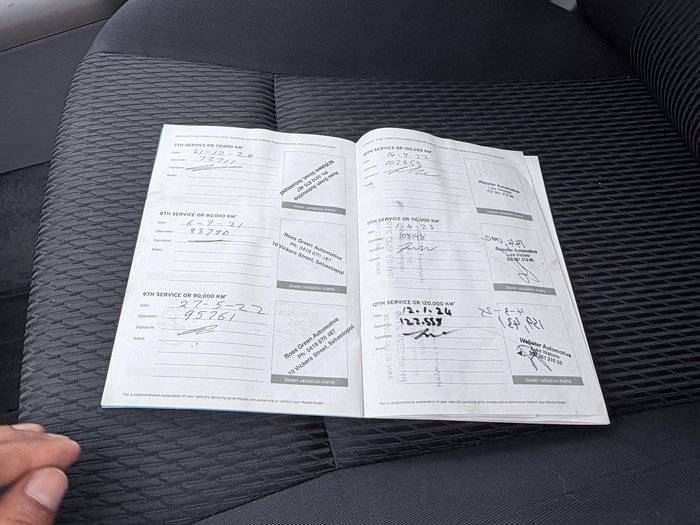 7TH SERVICE OR 70,000 KM*
Date: 21-12-20
Odometer: 73711
Signature:
Notes:
Rose Green Automotive
Ph: 0419 870 487
10 Vickers Street, Sebastopol
Dealer validation stamp
8TH SERVICE OR 80,000 KM*
Date: 6-9-21
Odometer: 83790
Signature:
Notes:
Rose Green Automotive
Ph: 0419 870 487
10 Vickers Street, Sebastopol
Dealer validation stamp
9TH SERVICE OR 90,000 KM*
Date: 27-5-22
Odometer: 95761
Signature:
Notes:
Rose Green Automotive
Ph: 0419 870 487
10 Vickers Street, Sebastopol
Dealer validation stamp
*For a comprehensive explanation of your vehicle's servicing go to mazda.com.au/service or contact your Mazda Dealer
10TH SERVICE OR 100,000 KM*
Date:
Odometer: 102459
Signature:
Notes:
Webster Automotive
Luke Webster
Dealer validation stamp
11TH SERVICE OR 110,000 KM*
Date: 1-4-23
Odometer:
Signature:
Webster Automotive
Luke Webster
Dealer validation stamp
12TH SERVICE OR 120,000 KM*
Date: 12.1.24
Odometer: 122.559
Signature:
Notes:
Webster Automotive
Luke Webster
Dealer validation stamp
*For a comprehensive explanation of your vehicle's servicing go to mazda.com.au/service or contact your Mazda Dealer